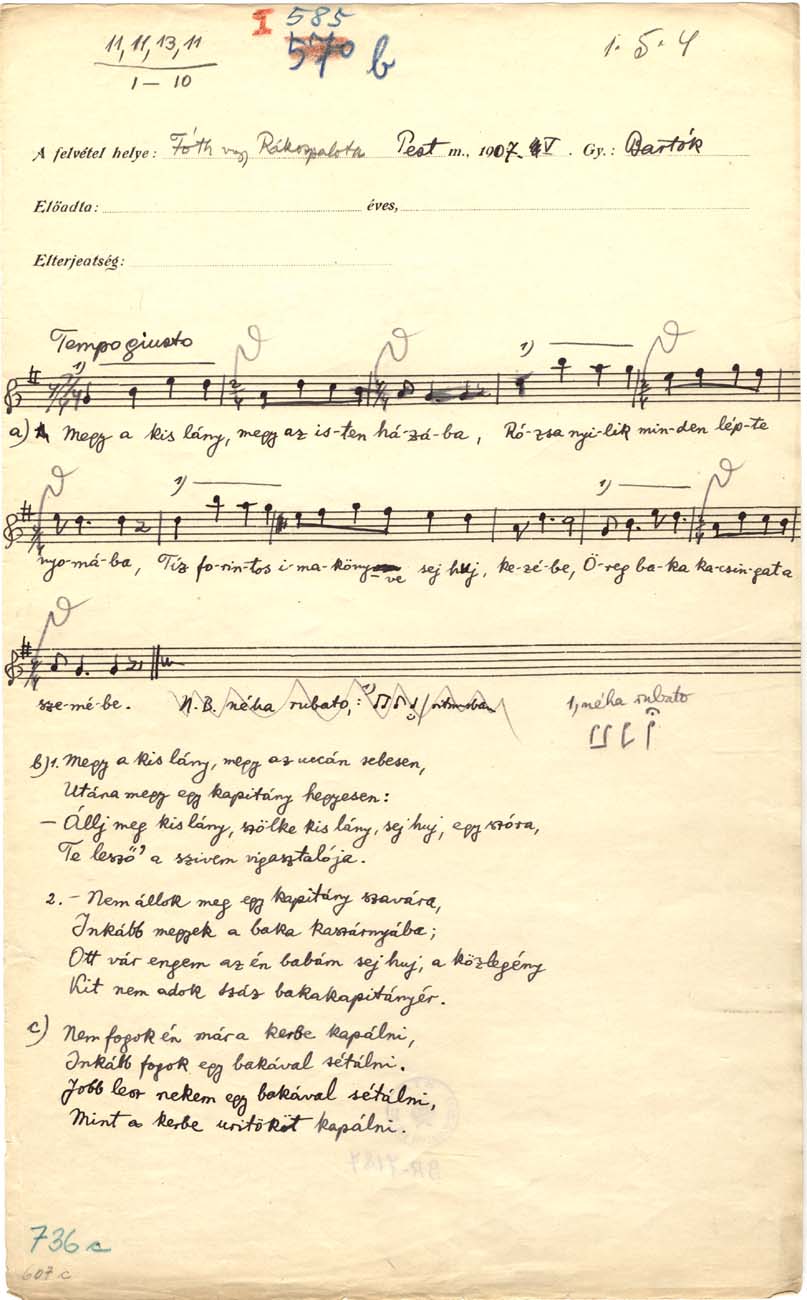 11, 11, 13, 11
1 – 10
I 585
570 b
1. 5. 4
A felvétel helye: Fóth vagy Rákospalota Pest m., 1907. IV. Gy.: Bartók
Előadta: éves,
Elterjeatség:
Tempo giusto
1) 1)
a) Megy a kis lány, megy az is-ten há-zá-ba, Ró-zsa nyi-lik min-den lép-te
1) 1)
nyo-má-ba, Tíz fo-rin-tos i-ma-köny-ve sej huj, ke-zé-be, Ö-reg ba-ka ka-csin-gat a
sze-mé-be. N.B. néha rubato, : ritmusban
1, néha rubato
b) 1. Megy a kis lány, megy az uccán sebesen,
Utána megy egy kapitány hegyesen:
– Állj meg kis lány, szőlke kis lány, sej huj, egy szóra,
Te lesző' a szivem vigasztalója.
2. – Nem állok meg egy kapitány szavára,
Inkább megyek a baka kaszárnyába;
Ott vár engem az én babám sej huj, a közlegény
Kit nem adok száz bakakapitányér.
c) Nem fogok én mára kerbe kapálni,
Inkább fogok egy bakával sétálni.
Jobb lesz nekem egy bakával sétálni,
Mint a kerbe uritököt kapálni.
BR-7187
736 c
607 c